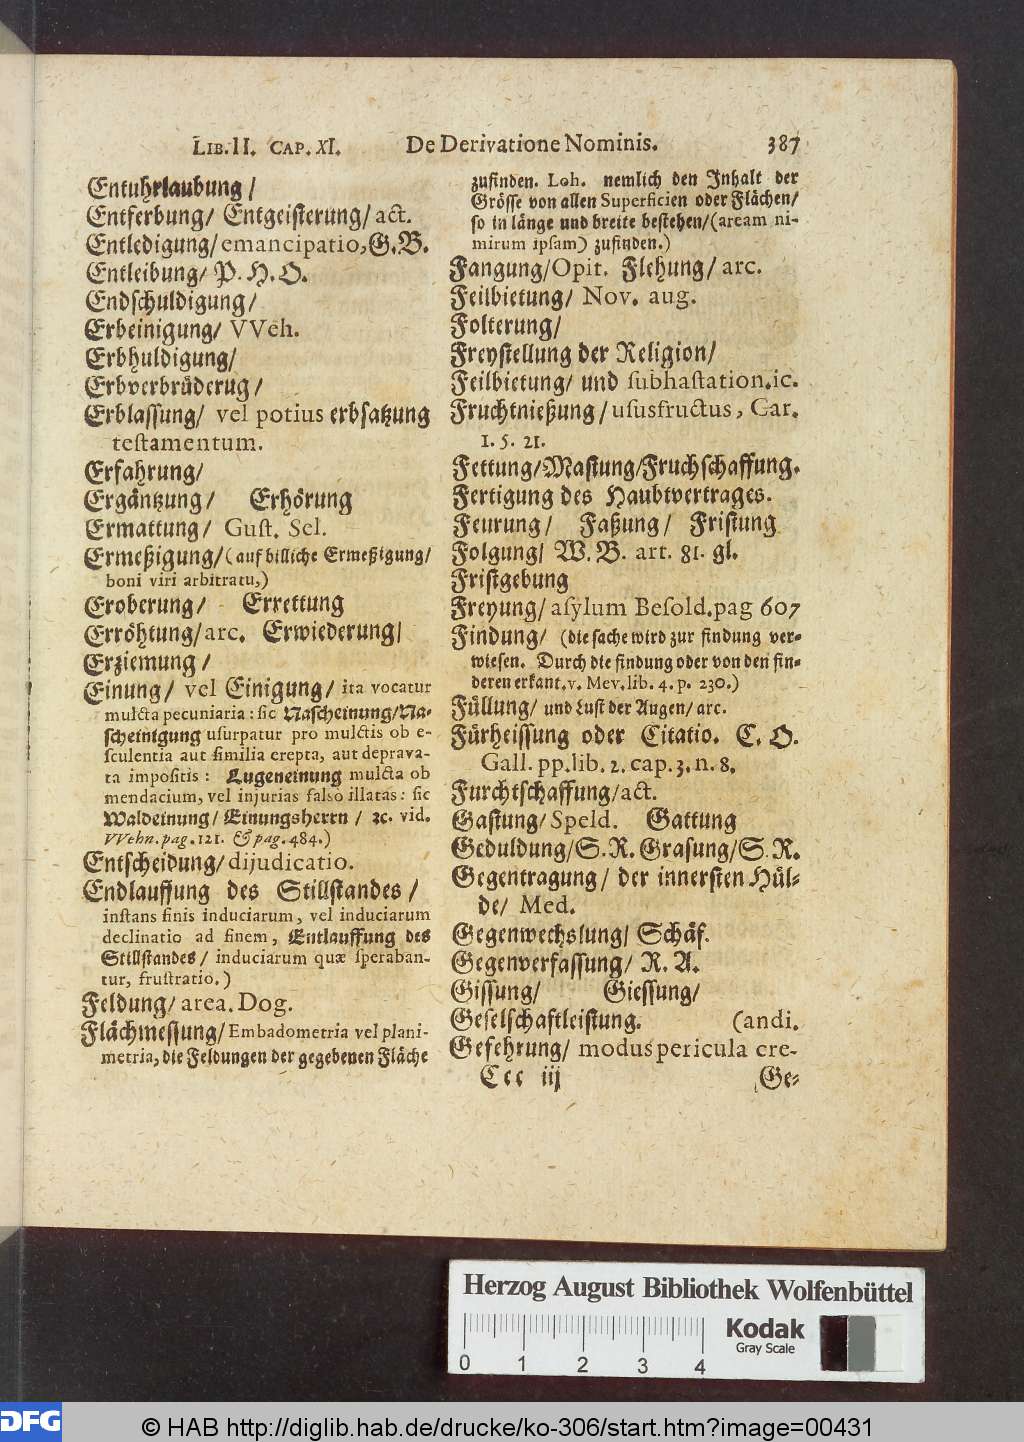 LIB. II. CAP. XI. De Derivatione Nominis. 387
Entuhrlaubung /
Entferbung / Entgeisterung / act.
Entledigung / emancipatio, G. B.
Entleibung / P. H. O.
Endschuldigung /
Erbeinigung / VVeh.
Erbhuldigung /
Erbverbrüderug /
Erblassung / vel potius erbsatzung
testamentum.
Erfahrung /
Ergäntzung / Erhörung
Ermattung / Gust. Sel.
Ermeßigung / (auf billiche Ermeßigung /
boni viri arbitratu,)
Eroberung / Errettung
Erröhtung / arc. Erwiederung /
Erziemung /
Einung / vel Einigung / ita vocatur
mulcta pecuniaria: sic Nascheinung / Na-
scheinigung usurpatur pro mulctis ob e-
sculentia aut similia erepta, aut deprava-
ta impositis: Lugeneinung mulcta ob
mendacium, vel injurias falso illatas: sic
Waldeinung / Einungsherrn / ꝛc. vid.
VVehn. pag. 121. & pag. 484.)
Entscheidung / dijudicatio.
Endlauffung des Stillstandes /
instans finis induciarum, vel induciarum
declinatio ad finem, Entlauffung des
Stillstandes / induciarum quæ speraban-
tur, frustratio.)
Feldung / area. Dog.
Flächmessung / Embadometria vel plani-
metria, die Feldungen der gegebenen Fläche
zufinden. Loh. nemlich den Inhalt der
Grösse von allen Superficien oder Flächen /
so in länge und breite bestehen / (aream ni-
mirum ipsam) zufinden.)
Fangung / Opit. Flehung / arc.
Feilbietung / Nov. aug.
Folterung /
Freystellung der Religion /
Feilbietung / und subhastation. ic.
Fruchtnießung / ususfructus, Gar.
1. 5. 21.
Fettung / Mastung / Fruchschaffung.
Fertigung des Haubtvertrages.
Feurung / Faßung / Fristung
Folgung / W. B. art. 81. gl.
Fristgebung
Freyung / asylum Besold. pag 607
Findung / (die sache wird zur findung ver-
wiesen. Durch die findung oder von den fin-
deren erkant. v. Mev. lib. 4. p. 230.)
Füllung / und Lust der Augen / arc.
Fürheissung oder Citatio. C. O.
Gall. pp. lib. 2. cap. 3. n. 8.
Furchtschaffung / act.
Gastung / Speld. Gattung
Geduldung / S. R. Grasung / S. R.
Gegentragung / der innersten Hül-
de / Med.
Gegenwechslung / Schäf.
Gegenverfassung / R. A.
Gissung / Giessung /
Geselschaftleistung. (andi.
Gefehrung / modus pericula cre-
Ccc iij Ge-
Herzog August Bibliothek Wolfenbüttel
0 1 2 3 4
Kodak
Gray Scale
DFG
© HAB http://diglib.hab.de/drucke/ko-306/start.htm?image=00431